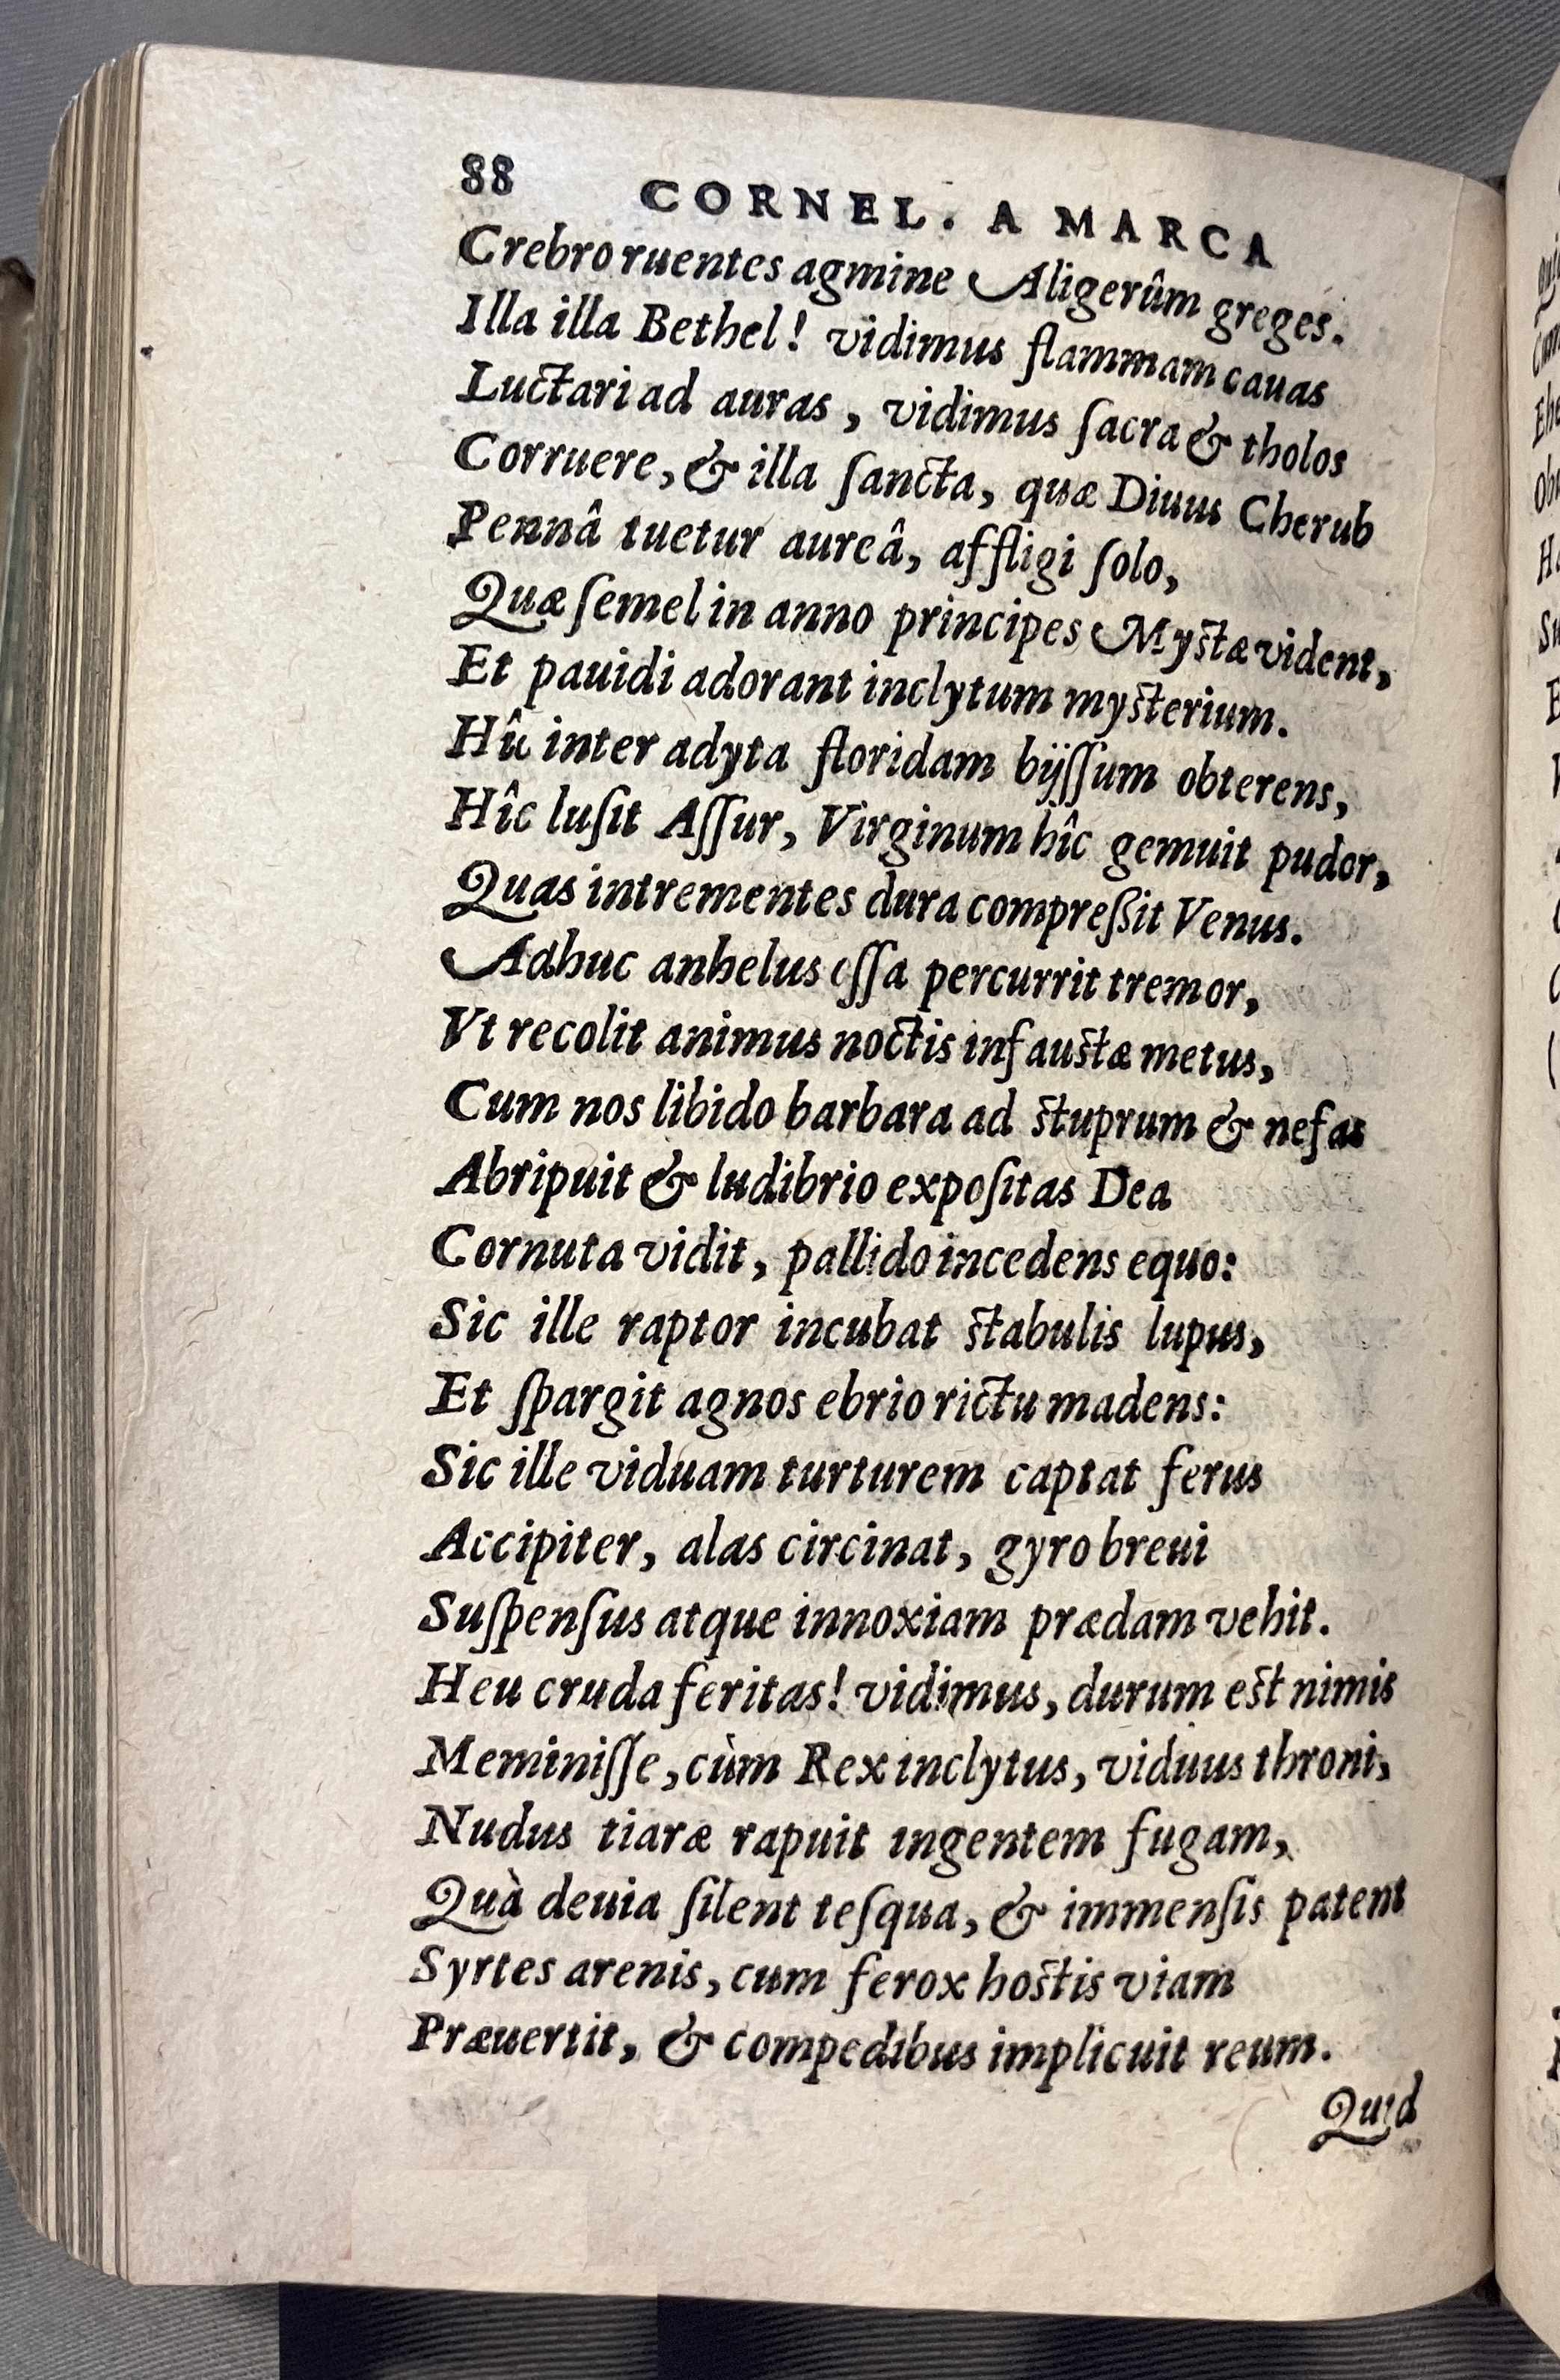 88 CORNEL. A MARCA
Crebro ruentes agmine Aligerûm greges.
Illa illa Bethel! vidimus flammam cauas
Luctari ad auras, vidimus ſacra & tholos
Corruere, & illa ſancta, quæ Diuus Cherub
Pennâ tuetur aureâ, affligi ſolo,
Quæ ſemel in anno principes Myſtæ vident,
Et pauidi adorant inclytum myſterium.
Hîc inter adyta floridam byſſum obterens,
Hîc luſit Aſſur, Virginum hîc gemuit pudor,
Quas intrementes dura compreſſit Venus.
Adhuc anhelus oſſa percurrit tremor,
Vt recolit animus noctis infauſtæ metus,
Cum nos libido barbara ad ſtuprum & nefas
Abripuit & ludibrio expoſitas Dea
Cornuta vidit, pallido incedens equo:
Sic ille raptor incubat ſtabulis lupus,
Et ſpargit agnos ebrio rictu madens:
Sic ille viduam turturem captat ferus
Accipiter, alas circinat, gyro breui
Suſpenſus atque innoxiam prædam vehit.
Heu cruda feritas! vidimus, durum eſt nimis
Meminiſſe, cùm Rex inclytus, viduus throni,
Nudus tiaræ rapuit ingentem fugam,
Quà deuia ſilent teſqua, & immenſis patent
Syrtes arenis, cum ferox hoſtis viam
Præuertit, & compedibus implicuit reum.
Quid